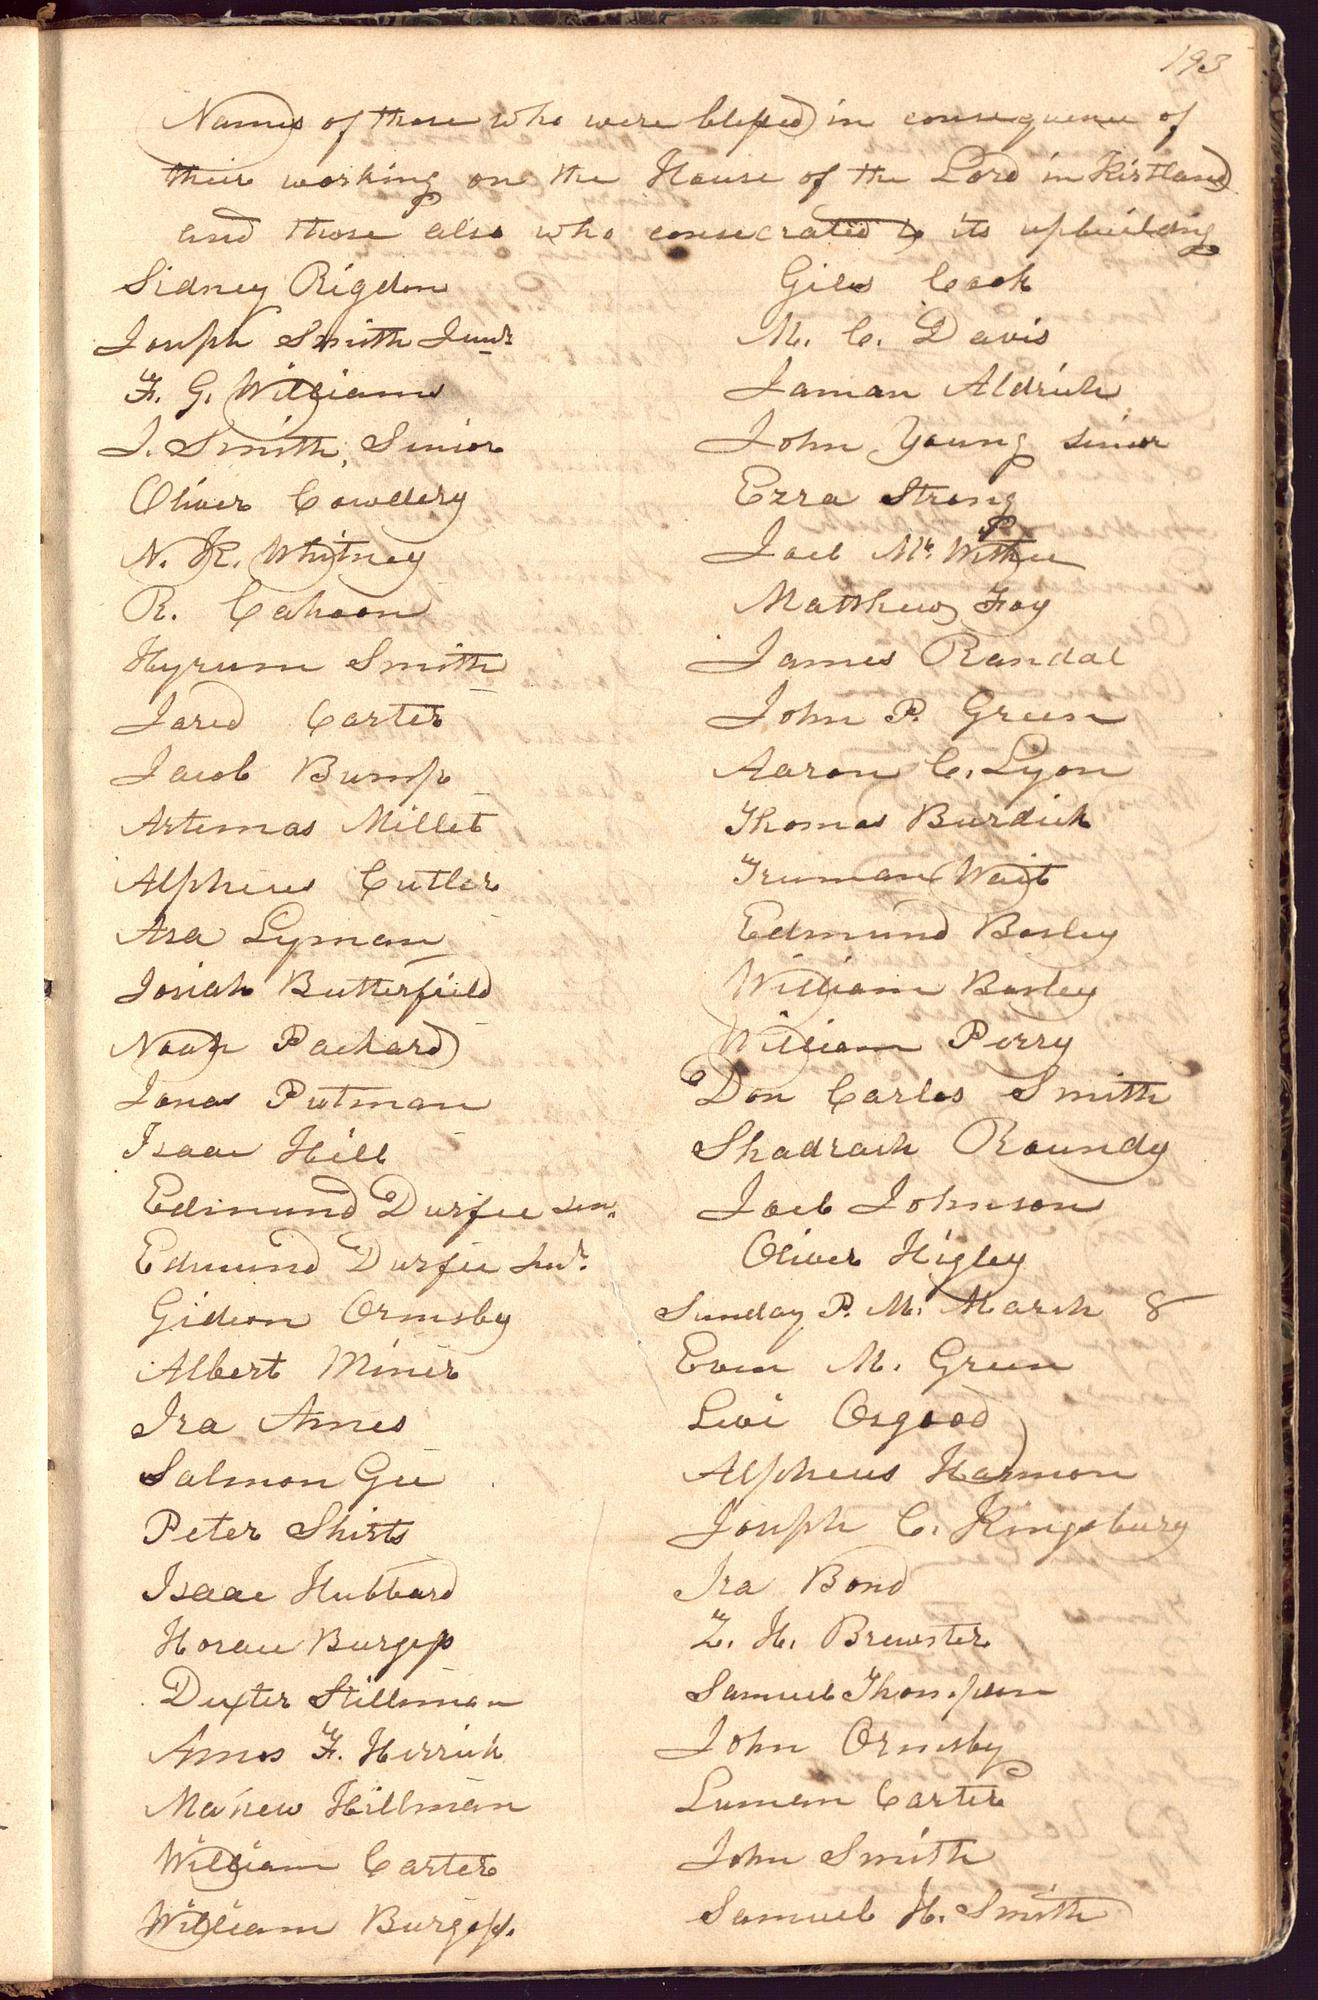 193
Names of those who were blessed in consequence of
their working on the House of the Lord in Kirtland
and those also who consecrated to its upbuilding
Sidney Rigdon
Joseph Smith Junr
F. G. Williams
J. Smith, Senior
Oliver Cowdery
N. K. Whitney
R. Cahoon
Hyrum Smith
Jared Carter
Jacob Bump
Artemas Millet
Alpheus Cutler
Asa Lyman
Josiah Butterfield
Noah Packard
Jonas Putman
Isaac Hill
Edmund Durfee sen.
Edmund Durfee Jur.
Gideon Ormsby
Albert Miner
Ira Ames
Salmon Gee
Peter Shirts
Isaac Hubbard
Horace Burgess
Dexter Stillman
Amos F. Herrick
Mahew Hillman
William Carter
William Burgess.
Giles Cook
M. C. Davis
Jaman Aldrich
John Young senior
Ezra Strong
Joel Mc. Withee
Matthew Foy
James Randal
John P. Green
Aaron C. Lyon
Thomas Burdick
Truman Wait
Edmund Bosley
William Bosley
William Perry
Don Carlos Smith
Shadrach Roundy
Joel Johnson
Oliver Higley
Sunday P. M. March 8
Even M. Green
Levi Osgood
Alpheus Harmon
Joseph C. Kingsbury
Ira Bond
Z. H. Brewster
Samuel Thompson
John Ormsby
Luman Carter
John Smith
Samuel H. Smith